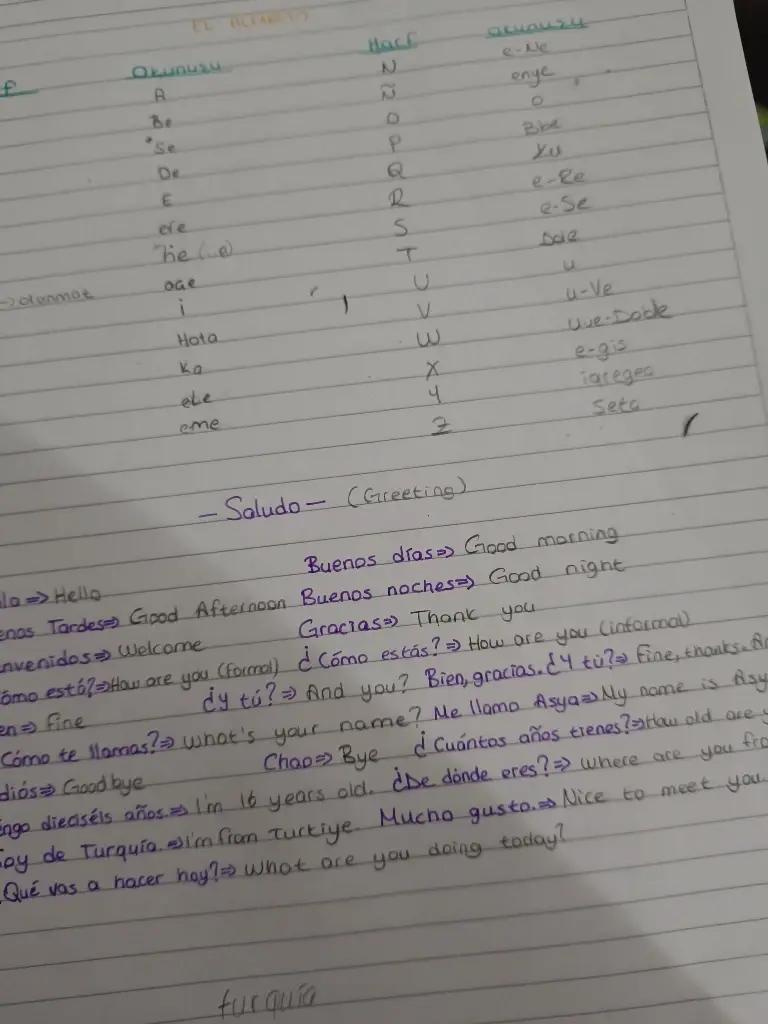 EL ALFABETO
f Okunuşu Harf okunuşu
A N e-Ne
Be Ñ enye
*Se O o
De P
E Q Ku
efe R e-Re
S e-Se
T
→ olanmat i U u
Hota V u-Ve
Ka W
ele X e-gis
eme Y
Z Seta
- Saludo - (Greeting)
la ⇒ Hello Buenos días ⇒ Good morning
enas Tardes ⇒ Good Afternoon Buenos noches ⇒ Good night
nvenidos ⇒ Welcome Gracias ⇒ Thank you
ómo está? ⇒ How are you (formal) ¿Cómo estás? ⇒ How are you (informal)
en ⇒ fine ¿y tú? ⇒ And you? Bien, gracias. ¿Y tú? ⇒ Fine, thanks. An
Cómo te llamas? ⇒ What's your name? Me llamo Asya ⇒ My name is Asy
diós ⇒ Goodbye Chao ⇒ Bye ¿Cuántos años tienes? ⇒ How old are y
engo dieciséis años. ⇒ I'm 16 years old. ¿De dónde eres? ⇒ Where are you fro
oy de Turquía. ⇒ I'm from Turkiye. Mucho gusto. ⇒ Nice to meet you.
Qué vas a hacer hoy? ⇒ What are you doing today?
turquía